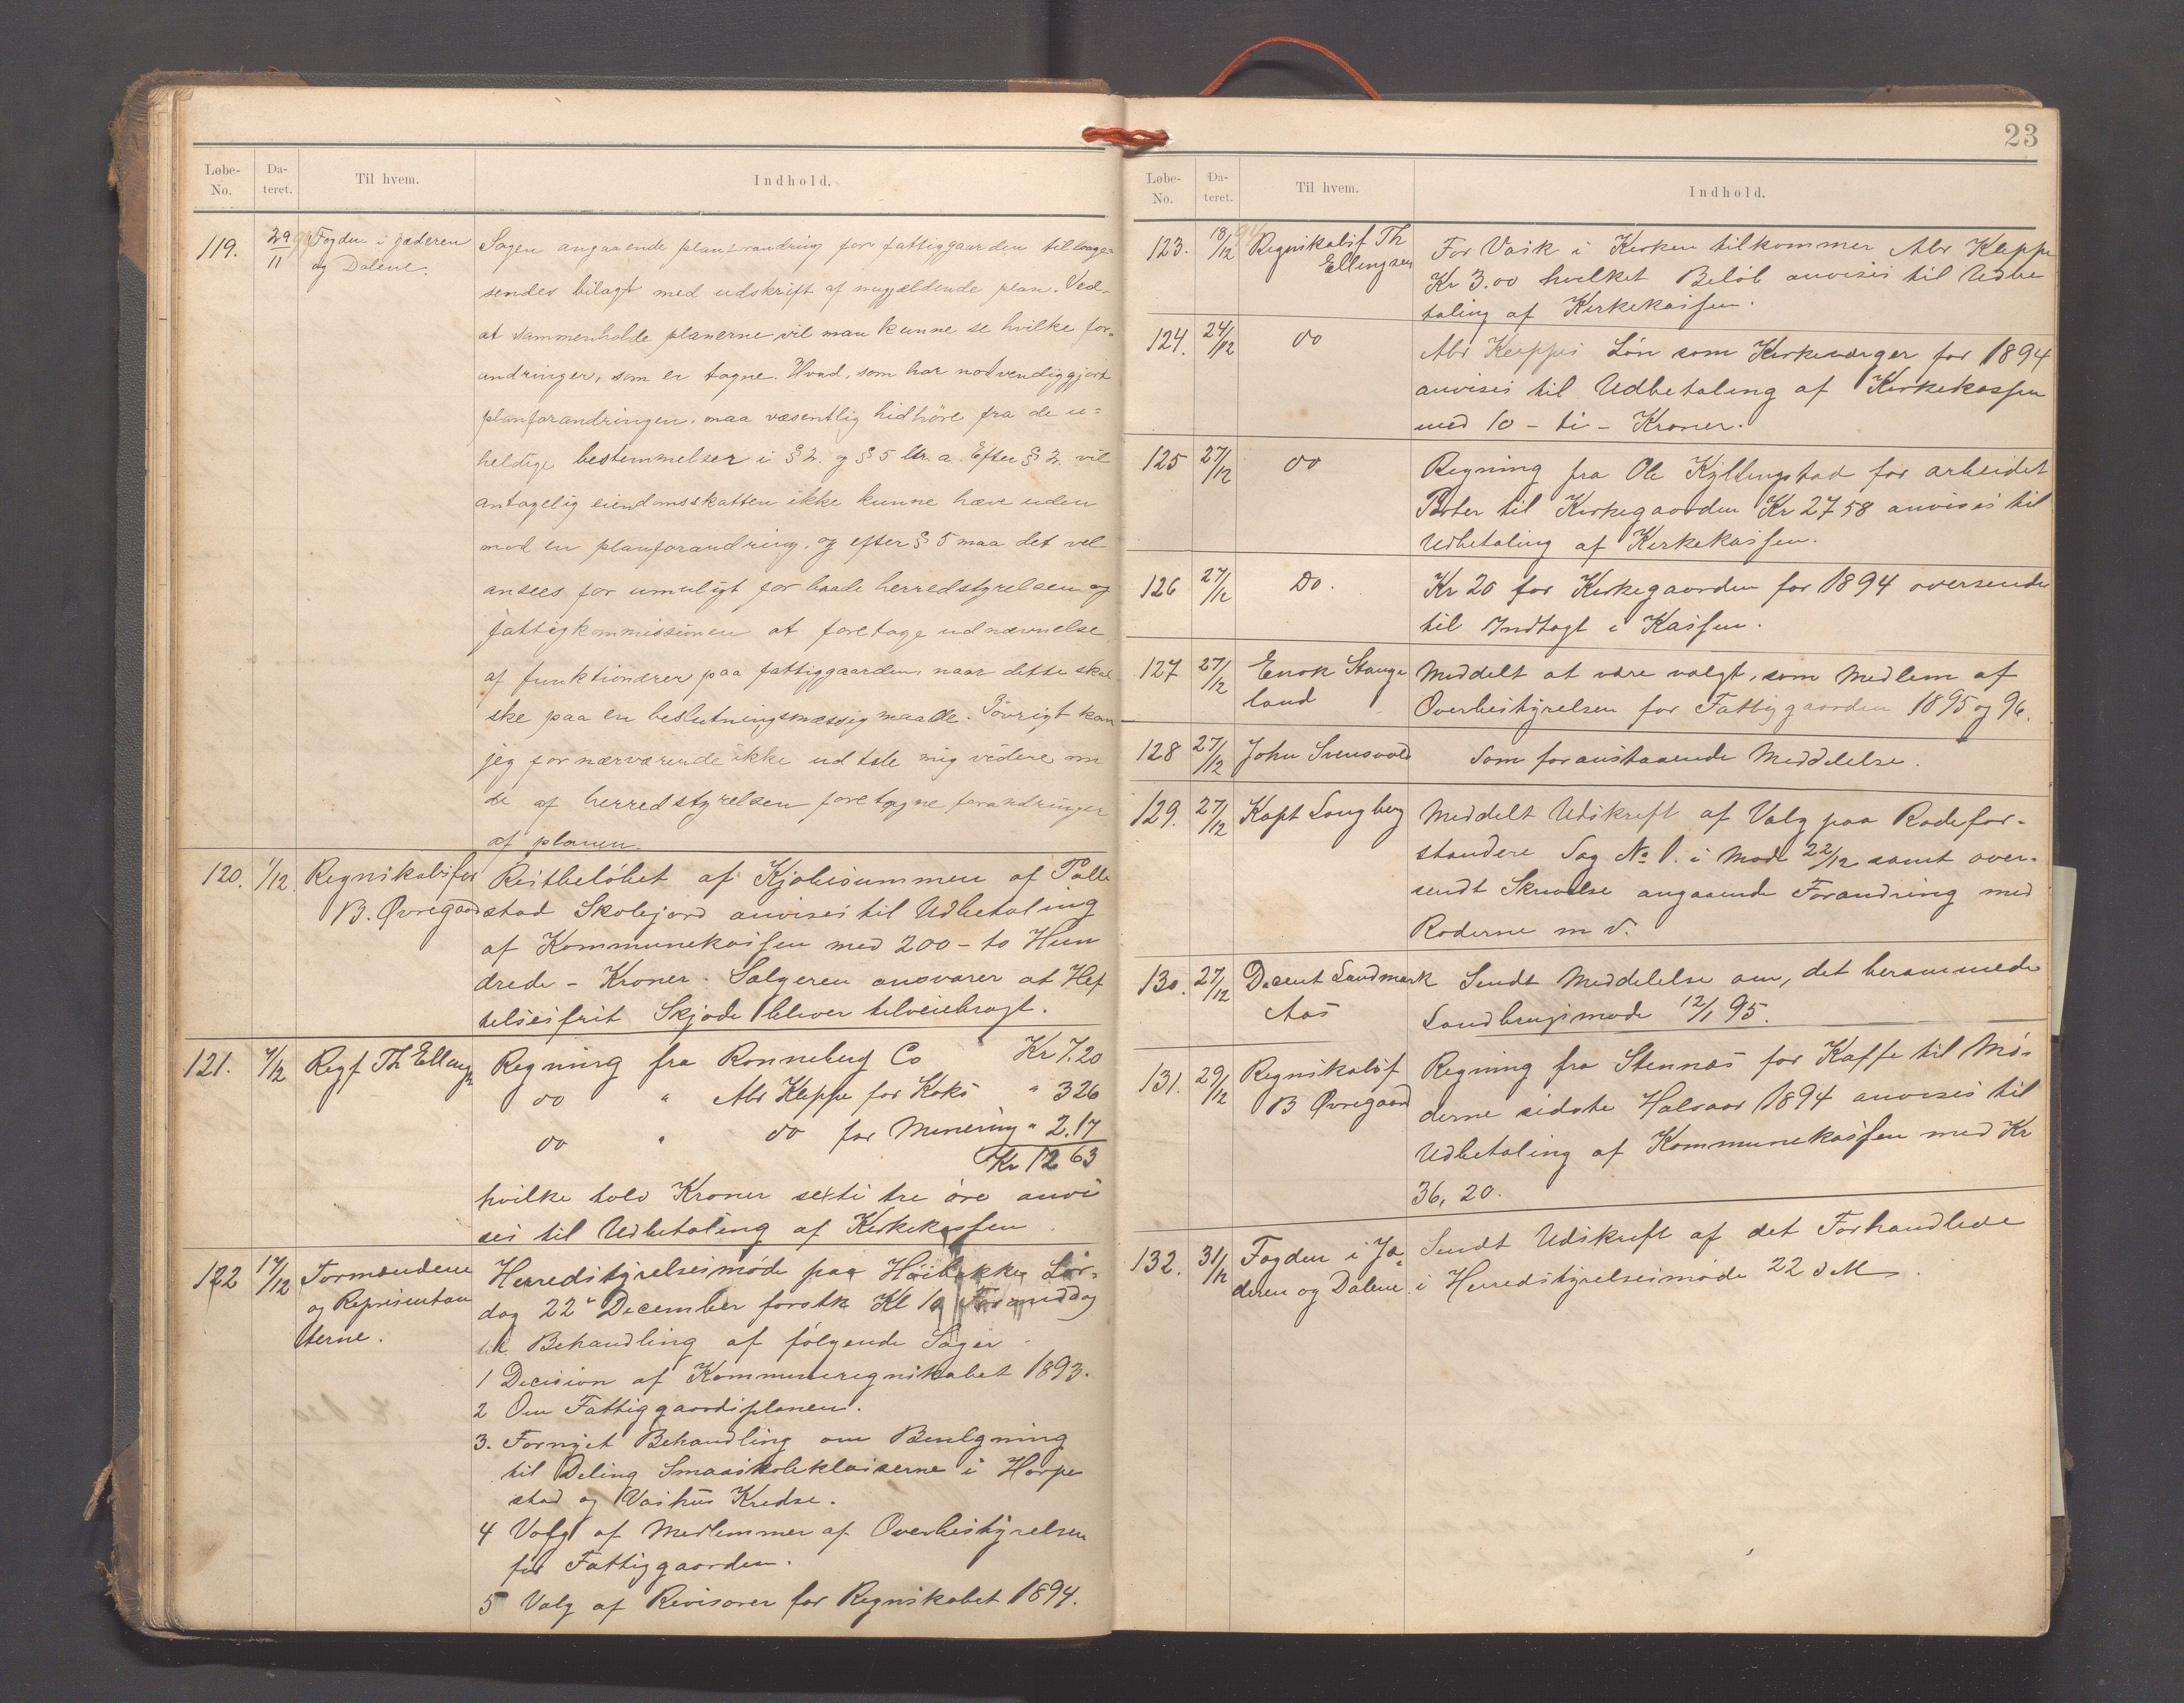 Løbe-No. Da-teret. Til hvem. Indhold.
119. 29/11 94 Fogden i Jæderen og Dalene.
Sagen angaaende planforandring for fattiggaarden tilbage-
sendes bilagt med udskrift af nugjældende plan. Ved-
at sammenholde planerne vil man kunne se hvilke for-
andringer, som er tagne. Hvad, som har nødvendiggjort
planforandringen, maa væsentlig hidhöre fra de u=
heldige bestemmelser i § 2. og § 5 ltr. a. Efter § 2. vil
antagelig eiendomsskatten ikke kunne hæve uden
med en planforandring, og efter § 5 maa det vel
ansees for umuligt for baade herredstyrelsen og
fattigkommissionen at foretage udnævnelse
af funktionærer paa fattiggaarden, naar dette skal
ske paa en beslutningsmæssig maade. Iövrigt kan
jeg for nærværende ikke udtale mig videre om
de af herredstyrelsen foretagne forandringer
af planen.
120. 1/12. Regnskabsfør B. Øvregaard
Restbelöbet af Kjøbesummen af Pølle
stad Skolejord anvises til Udbetaling
af Kommunekassen med 200 - to Hun
drede - Kroner. Sælgeren ansvarer at Hef
telsesfrit Skjøde bliver tilveiebragt.
121. 4/12 Regf. Th Ellings
Regning fra Ronneberg Co Kr 7.20
do " Abr Kleppe for Koks " 3 26
do " do for Minering " 2.17
Kr 12 63
hvilke tolv Kroner sexti tre öre anvi
ses til Udbetaling af Kirkekassen.
122 17/12 Formændene og Repræsentan terne.
Herredstyrelsesmöde paa Höibakke Lör-
dag 22de December förstk Kl 10 Formiddag
til Behandling af fölgende Sager
1 Decision af Kommuneregnskabet 1893.
2 Om Fattiggaardsplanen.
3. Fornyet Behandling om Beslgning
til Deling Smaaskoleklasserne i Horpe
stad og Vashus Kredse.
4 Valg af Medlemmer af Overbestyrelsen
for Fattiggaarden.
5 Valg af Revisorer for Regnskabet 1894.
23
Løbe-No. Da-teret. Til hvem. Indhold.
123. 18/12 94 Regnskabsf Th Ellingsen
For Vask i Kirken tilkommer Abr Kleppe
Kr 3.00 hvilket Belöb anvises til Udbe
taling af Kirkekassen.
124. 24/12 do
Abr Kleppes Lön som Kirkeværger for 1894
anvises til Udbetaling af Kirkekassen
med 10 - ti - Kroner.
125 27/12 do
Regning fra Ole Kyllingstad for arbeidet
Porter til Kirkegaarden Kr 27 58 anvises til
Udbetaling af Kirkekassen.
126 27/12 Do.
Kr 20 for Kirkegaarden for 1894 oversendes
til Indtagt i Kassen.
127 27/12 Enok Stange land
Meddelt at være valgt, som Medlem af
Overbestyrelsen for Fattiggaarden 1895 og 96.
128 27/12 John Svensvold
Som foranstaaende Meddelelse.
129. 27/12 Kapt Longberg
Meddelt Udskrift af Valg paa Rodefor-
standere Sag No 1. i Möde 22/12 samt over-
sendt Skrivelse angaaende Forandring med
Roderne m v.
130. 27/12 Docent Landmark Aas
Sendt Meddelelse om, det berammede
Landbrugsmøde 12/1 95.
131. 29/12 Regnskabsf B Øvregaard
Regning fra Stennæs for Kaffe til Mö-
derne sidste Halvaar 1894 anvises til
Udbetaling af Kommunekassen med Kr
36, 20.
132. 31/12 Fogden i Jæ deren og Dalene
Sendt Udskrift af det Forhandlede
i Herredstyrelsesmøde 22 d M.